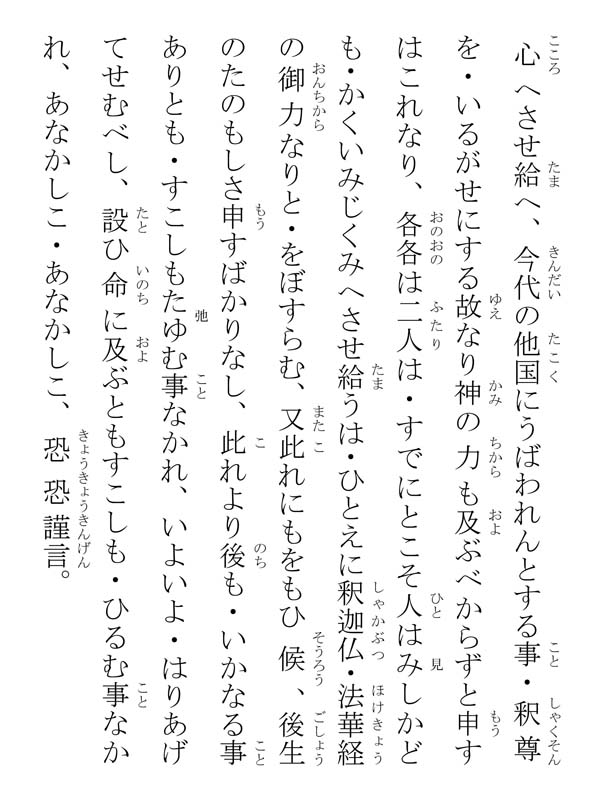 心へさせ給へ、今代の他国にうばわれんとする事・釈尊
を・いるがせにする故なり神の力も及ぶべからずと申す
はこれなり、各各は二人は・すでにとこそ人はみしかど
も・かくいみじくみへさせ給うは・ひとえに釈迦仏・法華経
の御力なりと・をぼすらむ、又此れにもをもひ候、後生
のたのもしさ申すばかりなし、此れより後も・いかなる事
ありとも・すこしもたゆむ事なかれ、いよいよ・はりあげ
てせむべし、設ひ命に及ぶともすこしも・ひるむ事なか
れ、あなかしこ・あなかしこ、恐恐謹言。